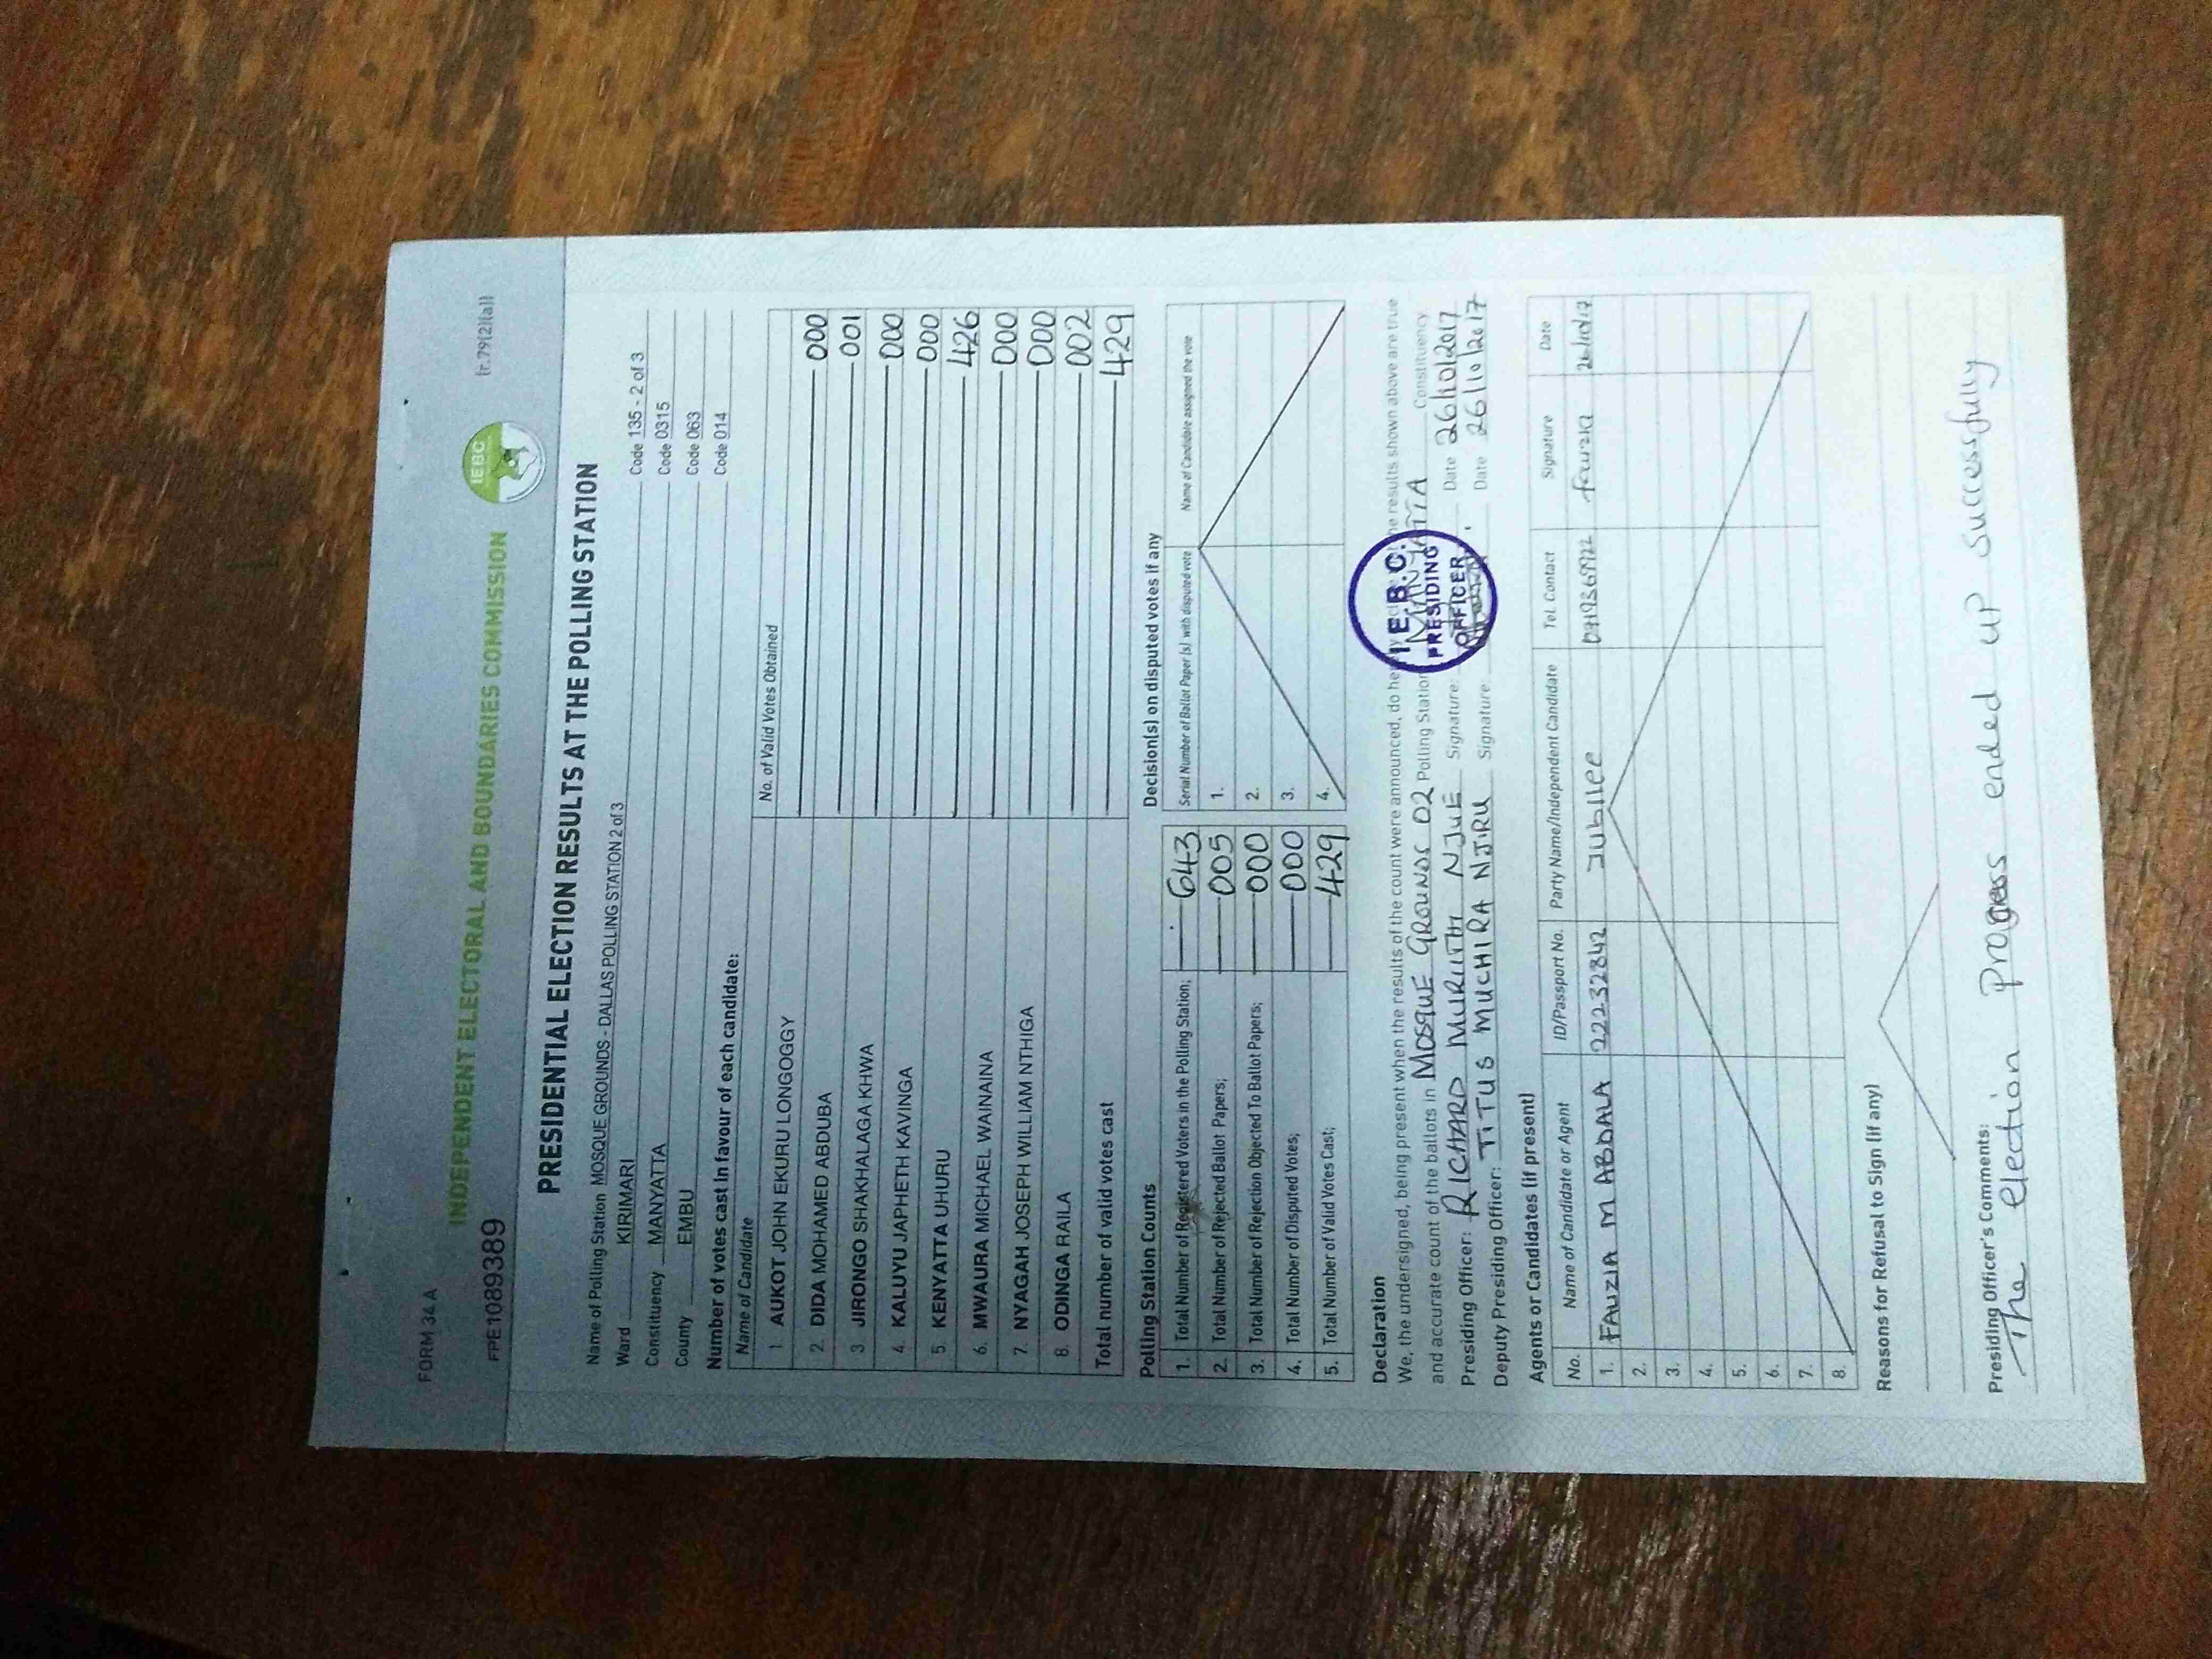 FORM 34 A
INDEPENDENT ELECTORAL AND BOUNDARIES COMMISSION
IEBC
(r.79(2)(a))
FPE1089389
PRESIDENTIAL ELECTION RESULTS AT THE POLLING STATION
Name of Polling Station MOSQUE GROUNDS - DALLAS POLLING STATION 2 of 3 Code 135 - 2 of 3
Ward KIRIMARI Code 0315
Constituency MANYATTA Code 063
County EMBU Code 014
Number of votes cast in favour of each candidate:
Name of Candidate No. of Valid Votes Obtained
1 AUKOT JOHN EKURU LONGOGGY 000
2. DIDA MOHAMED ABDUBA 001
3 JIRONGO SHAKHALAGA KHWA 000
4. KALUYU JAPHETH KAVINGA 000
5. KENYATTA UHURU 426
6. MWAURA MICHAEL WAINAINA 000
7. NYAGAH JOSEPH WILLIAM NTHIGA 000
8. ODINGA RAILA 002
Total number of valid votes cast 429
Polling Station Counts
1. Total Number of Registered Voters in the Polling Station; 643
2. Total Number of Rejected Ballot Papers; 005
3. Total Number of Rejection Objected To Ballot Papers; 000
4. Total Number of Disputed Votes; 000
5. Total Number of Valid Votes Cast; 429
Decision(s) on disputed votes if any
Serial Number of Ballot Paper (s) with disputed vote Name of Candidate assigned the vote
1.
2.
3.
4.
Declaration
We, the undersigned, being present when the results of the count were announced, do he results shown above are true
and accurate count of the ballots in MOSQUE GROUNDS 02 Polling Station MANYATTA Constituency
Presiding Officer: RICHARD MURIITHI NJUE Signature: Date 26/10/2017
Deputy Presiding Officer: TITUS MUCHIRA NJIRU Signature Date 26/10/2017
I.E.B.C.
PRESIDING
OFFICER
Agents or Candidates (if present)
No. Name of Candidate or Agent ID/Passport No. Party Name/Independent Candidate Tel. Contact Signature Date
1. FAUZIA M ABDALA 22232842 Jubilee Fauzia 26/10/17
2.
3.
4.
5.
6.
7.
8.
Reasons for Refusal to Sign (if any)
Presiding Officer's Comments:
The election progess ended up successfully